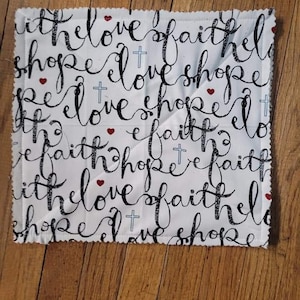 faith love faith love
hope love shope
love shope love
faith
faith hope faith
faith love faith
hope love shope